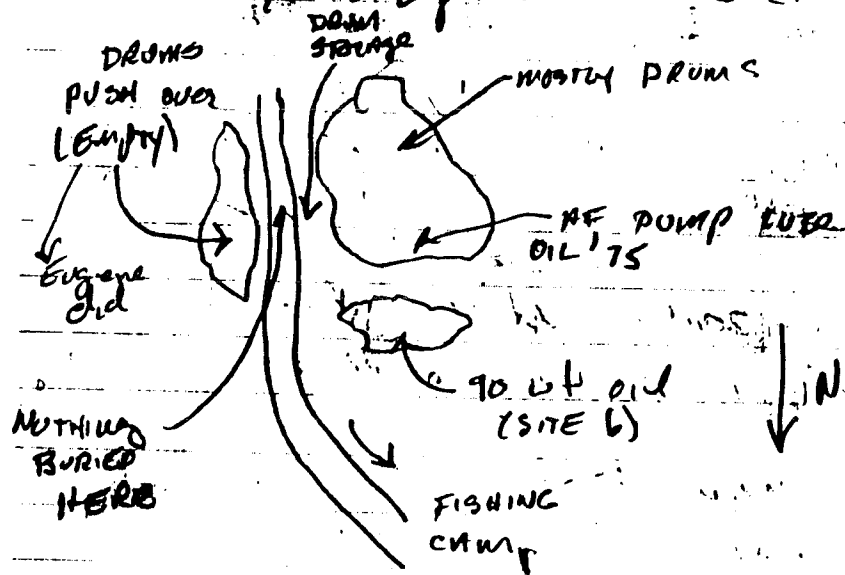 DRUM
STORAGE
DRUMS
PUSH over
(Empty)
MOSTLY DRUMS
AF PUMP
OIL '75
Eugene
did
90 wt oil
(SITE 6)
N
NOTHING
BURIED
HERE
FISHING
CAMP